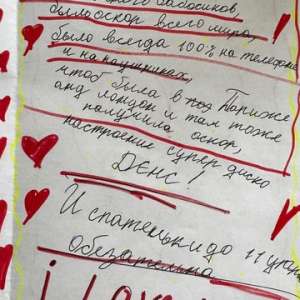 бабосиков,
был оскар всего мира,
было всегда 100% на телефоне
и на наушниках,
чтоб была в Париже
анд лондон и там тоже
получила оскар,
настроение супер диско
ДЕНС!
И спатеньки до 11 утра
обезательна
i love